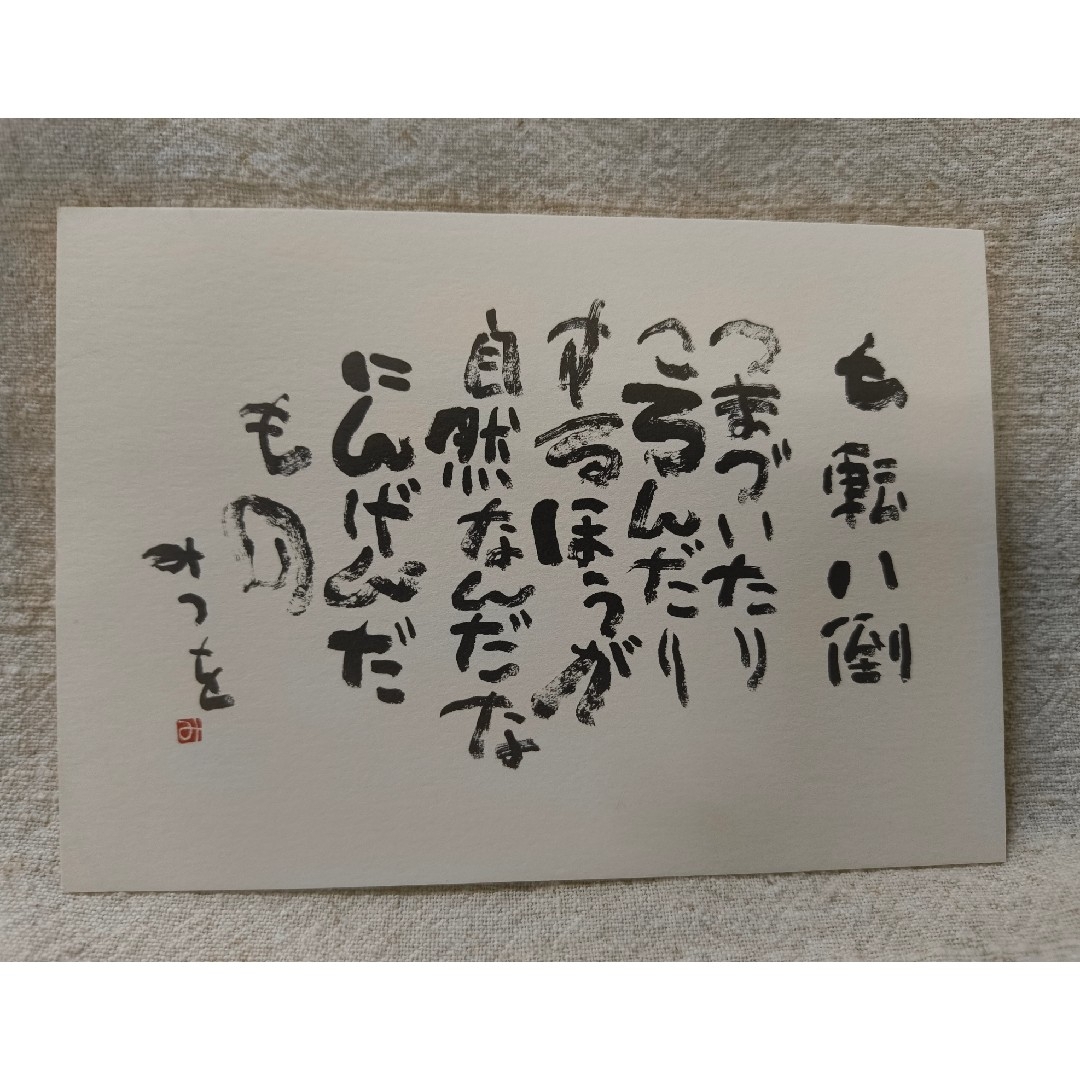 七転八倒
つまづいたり
ころんだり
するほうが
自然なんだな
にんげんだ
もの
みつを
み